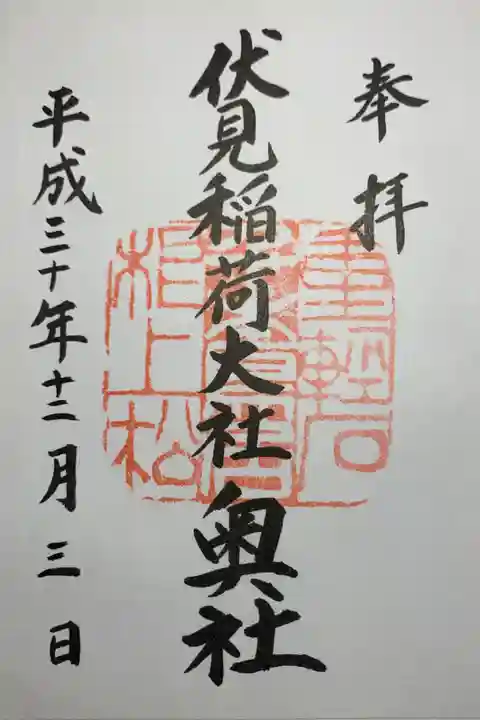 奉拝
伏見稲荷大社奥社
平成三十年十二月三日